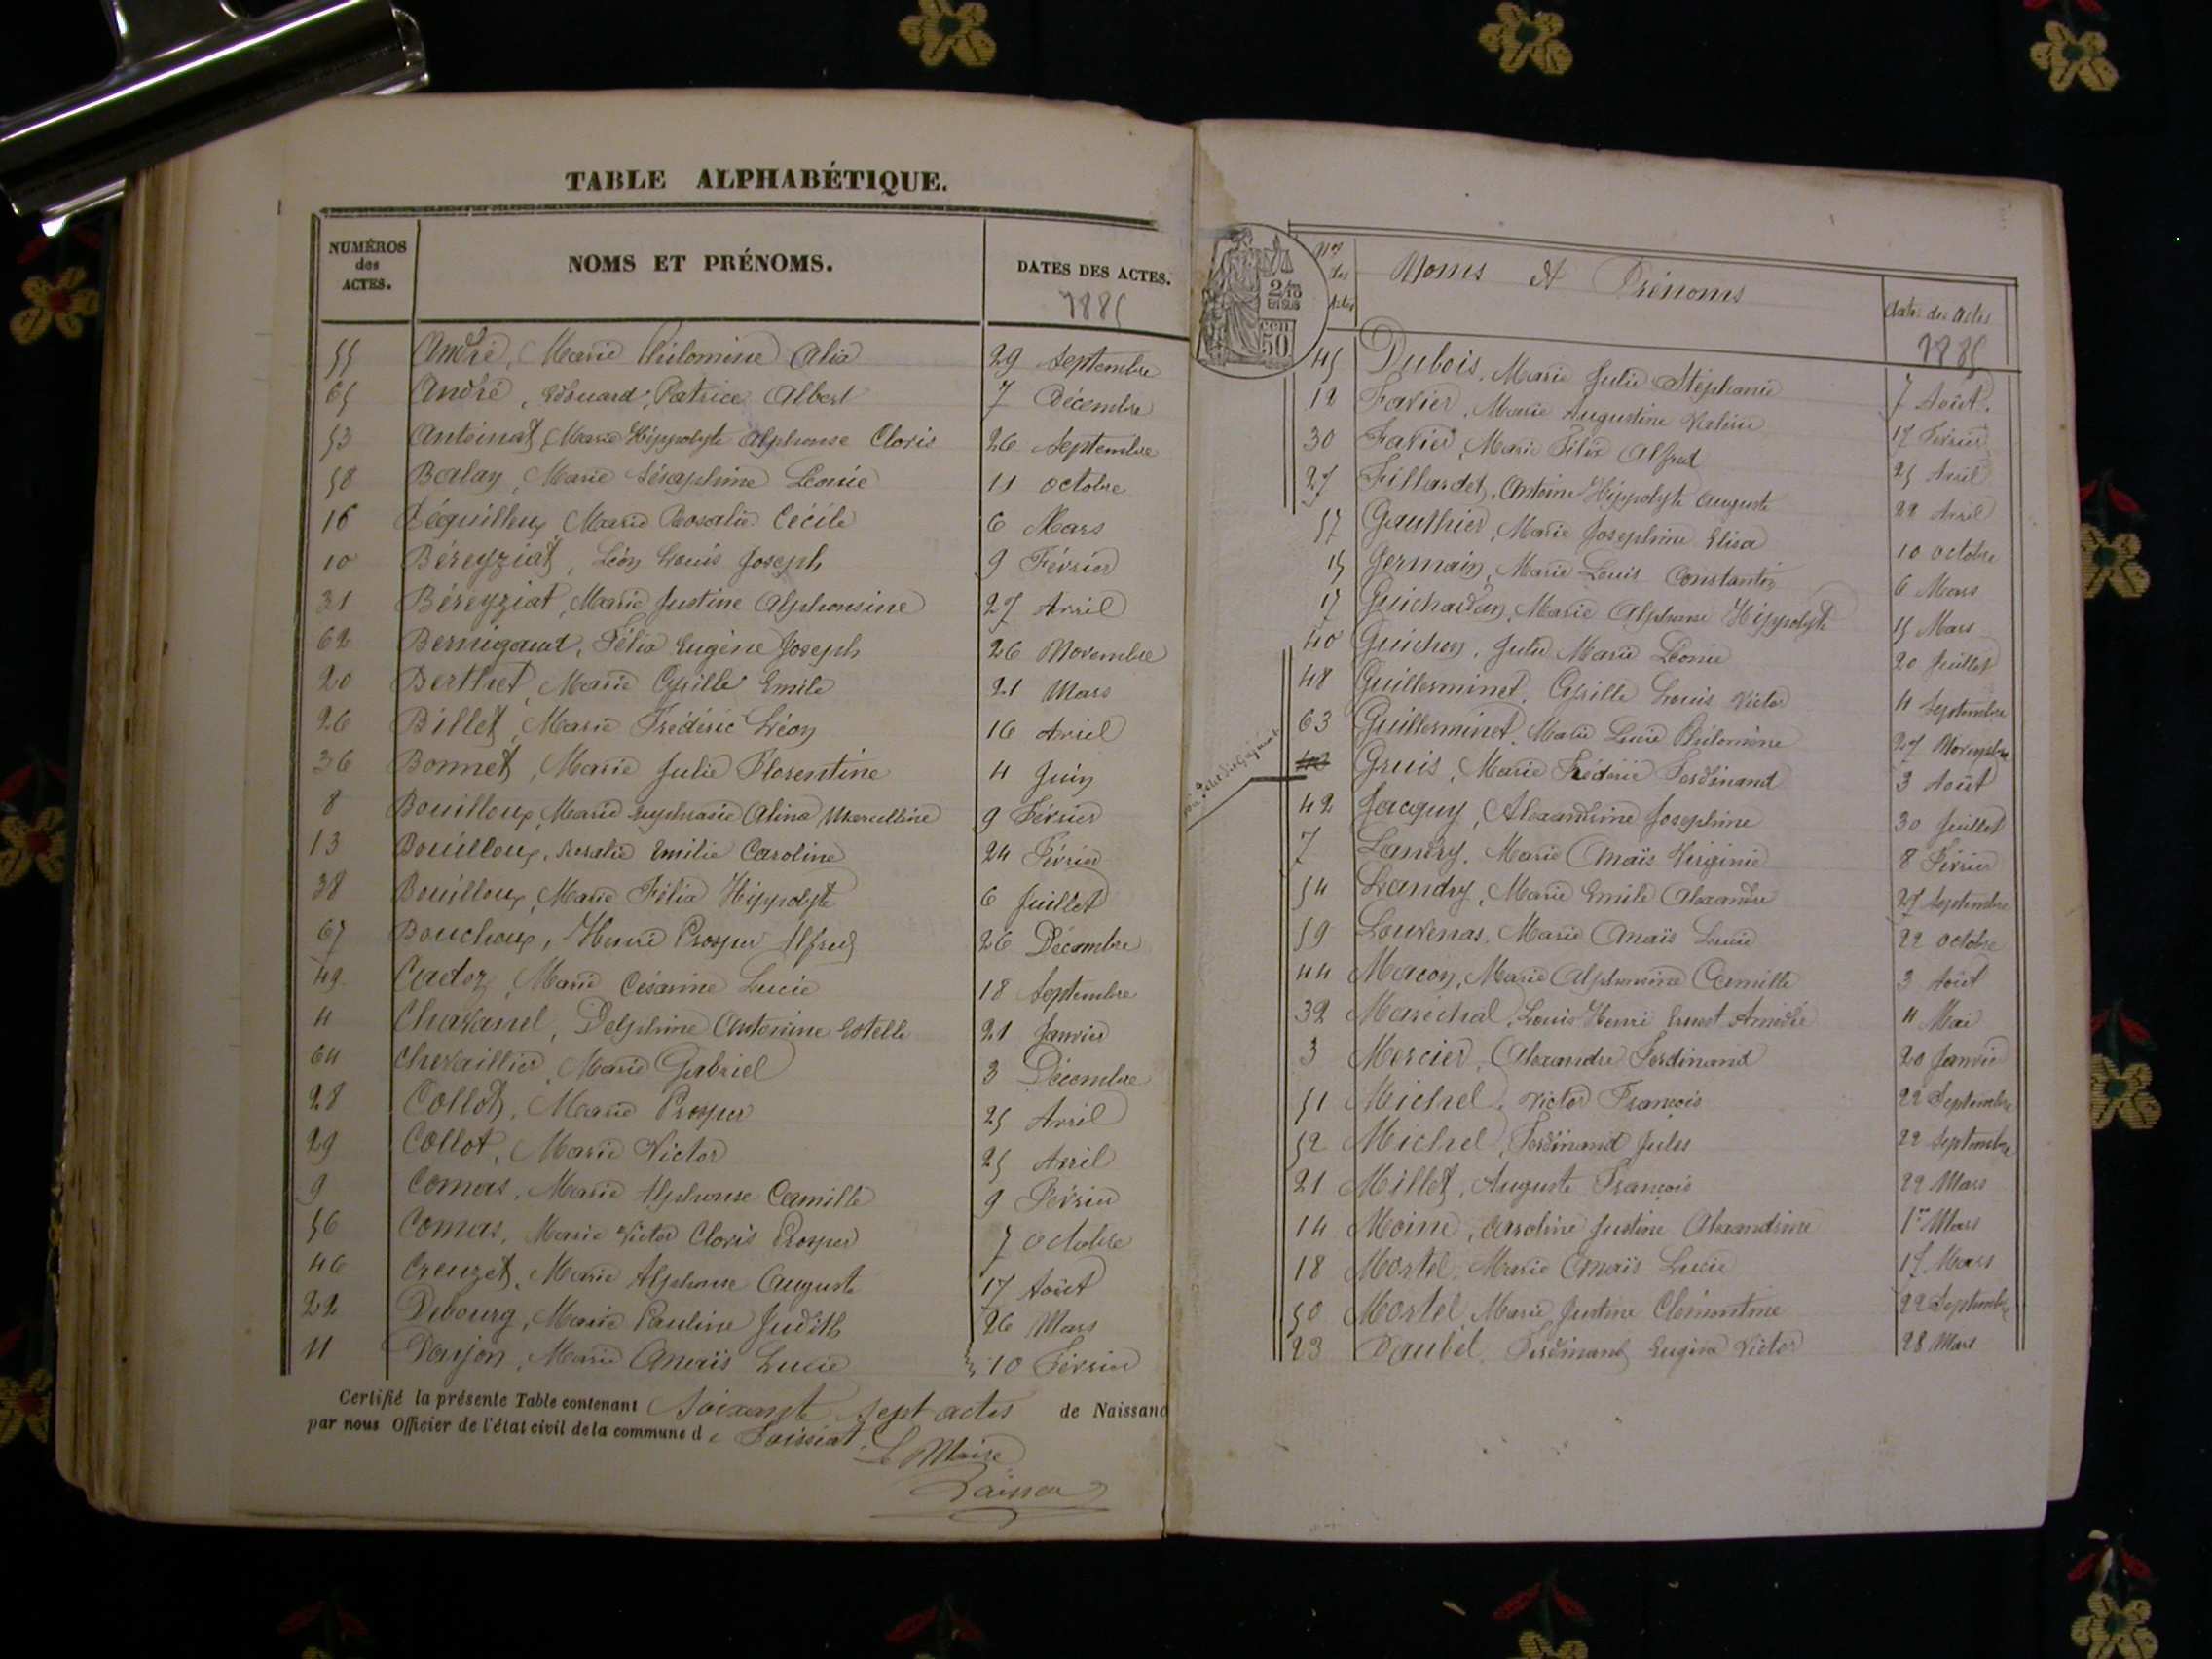 TABLE ALPHABÉTIQUE.
NUMÉROS des ACTES. NOMS ET PRÉNOMS. DATES DES ACTES.
1885
55 André, Marie Philomène Alix 29 Septembre
65 André, Edouard, Patrice Albert 7 Décembre
53 Antoinat, Marie Hippolyte Alphonse Clovis 26 Septembre
58 Balay, Marie Séraphine Léonie 11 octobre
16 Béquilleux, Marie Rosalie Cécile 6 Mars
10 Béreyziat, Léon Louis Joseph 9 Février
31 Béreyziat, Marie Justine Alphonsine 27 Avril
62 Bernigaud, Félix Eugène Joseph 26 Novembre
20 Berthet, Marie Cyrille Emile 21 Mars
26 Billet, Marie Frédéric Léon 16 Avril
36 Bonnet, Marie Julie Florentine 4 Juin
8 Bouilloux, Marie Euphrasie Alina Marcelline 9 Février
13 Bouilloux, Rosalie Emilie Caroline 24 Février
38 Bouilloux, Marie Félix Hippolyte 6 Juillet
67 Bouchoux, Henri Prosper Alfred 26 Décembre
49 Cadoz, Marie Césarine Lucie 18 Septembre
4 Chavanel, Delphine Antonine Estelle 21 Janvier
64 Chevaillier, Marie Gabriel 3 Décembre
28 Collot, Marie Prosper 25 Avril
29 Collot, Marie Victor 25 Avril
9 Comas, Marie Alphonse Camille 9 Février
56 Comas, Marie Victor Clovis Prosper 7 octobre
46 Creuzet, Marie Alphonse Auguste 17 Août
22 Debourg, Marie Pauline Judith 26 Mars
11 Marie Anaïs Lucie 10 Février
Certifié la présente Table contenant Soixante sept actes de Naissanc
par nous Officier de l'état civil de la commune de Foissiat.
Le Maire
2/10
EN SUS
50
Nos des Actes Noms et Prénoms Dates des Actes
1885
45 Dubois, Marie Julie Stéphanie 7 Août.
12 Favier, Marie Augustine Valérie 17 Février
30 Favier, Marie Félix Alfred 25 Avril
27 Fillardet, Antoine Hippolyte Auguste 22 Avril
57 Gauthier, Marie Josephine Elisa 10 octobre
15 Germain, Marie Louis Constantin 6 Mars
17 Guichardan, Marie Alphonse Hippolyte 15 Mars
40 Guichon, Julie Marie Léonie 20 Juillet
48 Guillerminet, Cyrille Louis Victor 11 Septembre
63 Guillerminet, Marie Lucie Philomène 27 Novembre
Gruis, Marie Frédéric Ferdinand 3 Août
42 Jacquy, Alexandrine Josephine 30 Juillet
7 Landry, Marie Anaïs Virginie 8 Février
54 Landry, Marie Emile Alexandre 27 Septembre
59 Louvenas, Marie Anaïs Lucie 22 octobre
44 Macon, Marie Alphonsine Camille 3 Août
32 Maréchal, Louis Henri Ernest Amédée 11 Mai
3 Mercier, Alexandre Ferdinand 20 Janvier
51 Michel, Victor François 22 Septembre
52 Michel, Ferdinand Jules 22 Septembre
21 Millet, Auguste François 22 Mars
14 Moine, Caroline Justine Alexandrine 1er Mars
18 Mortel, Marie Anaïs Lucie 17 Mars
50 Mortel, Marie Justine Clémentine 22 Septembre
23 Daubel, Ferdinand Eugène Victor 28 Mars